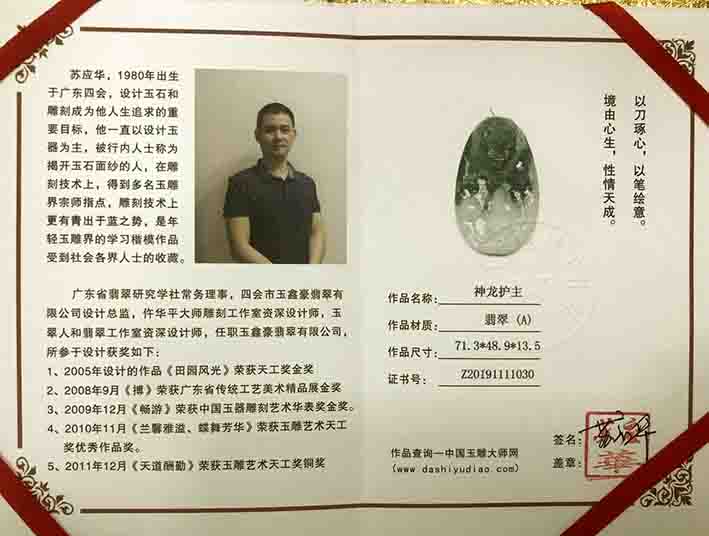 苏应华，1980年出生
于广东四会，设计玉石和
雕刻成为他人生追求的重
要目标，他一直以设计玉
器为主，被行内人士称为
揭开玉石面纱的人，在雕
刻技术上，得到多名玉雕
界宗师指点，雕刻技术上
更有青出于蓝之势，是年
轻玉雕界的学习楷模作品
受到社会各界人士的收藏。
广东省翡翠研究学社常务理事，四会市玉鑫豪翡翠有
限公司设计总监，仵华平大师雕刻工作室资深设计师，玉
翠人和翡翠工作室资深设计师，任职玉鑫豪翡翠有限公司，
所参于设计获奖如下：
1、2005年设计的作品《田园风光》荣获天工奖金奖
2、2008年9月《搏》荣获广东省传统工艺美术精品展金奖
3、2009年12月《畅游》荣获中国玉器雕刻艺术华表奖金奖。
4、2010年11月《兰馨雅溢、蝶舞芳华》荣获玉雕艺术天工
奖优秀作品奖。
5、2011年12月《天道酬勤》荣获玉雕艺术天工奖铜奖
以刀琢心，以笔绘意。
境由心生，性情天成。
作品名称： 神龙护主
作品材质： 翡翠（A）
作品尺寸： 71.3*48.9*13.5
证书号： Z20191111030
作品查询—中国玉雕大师网
(www.dashiyudiao.com)
签名：
盖章：